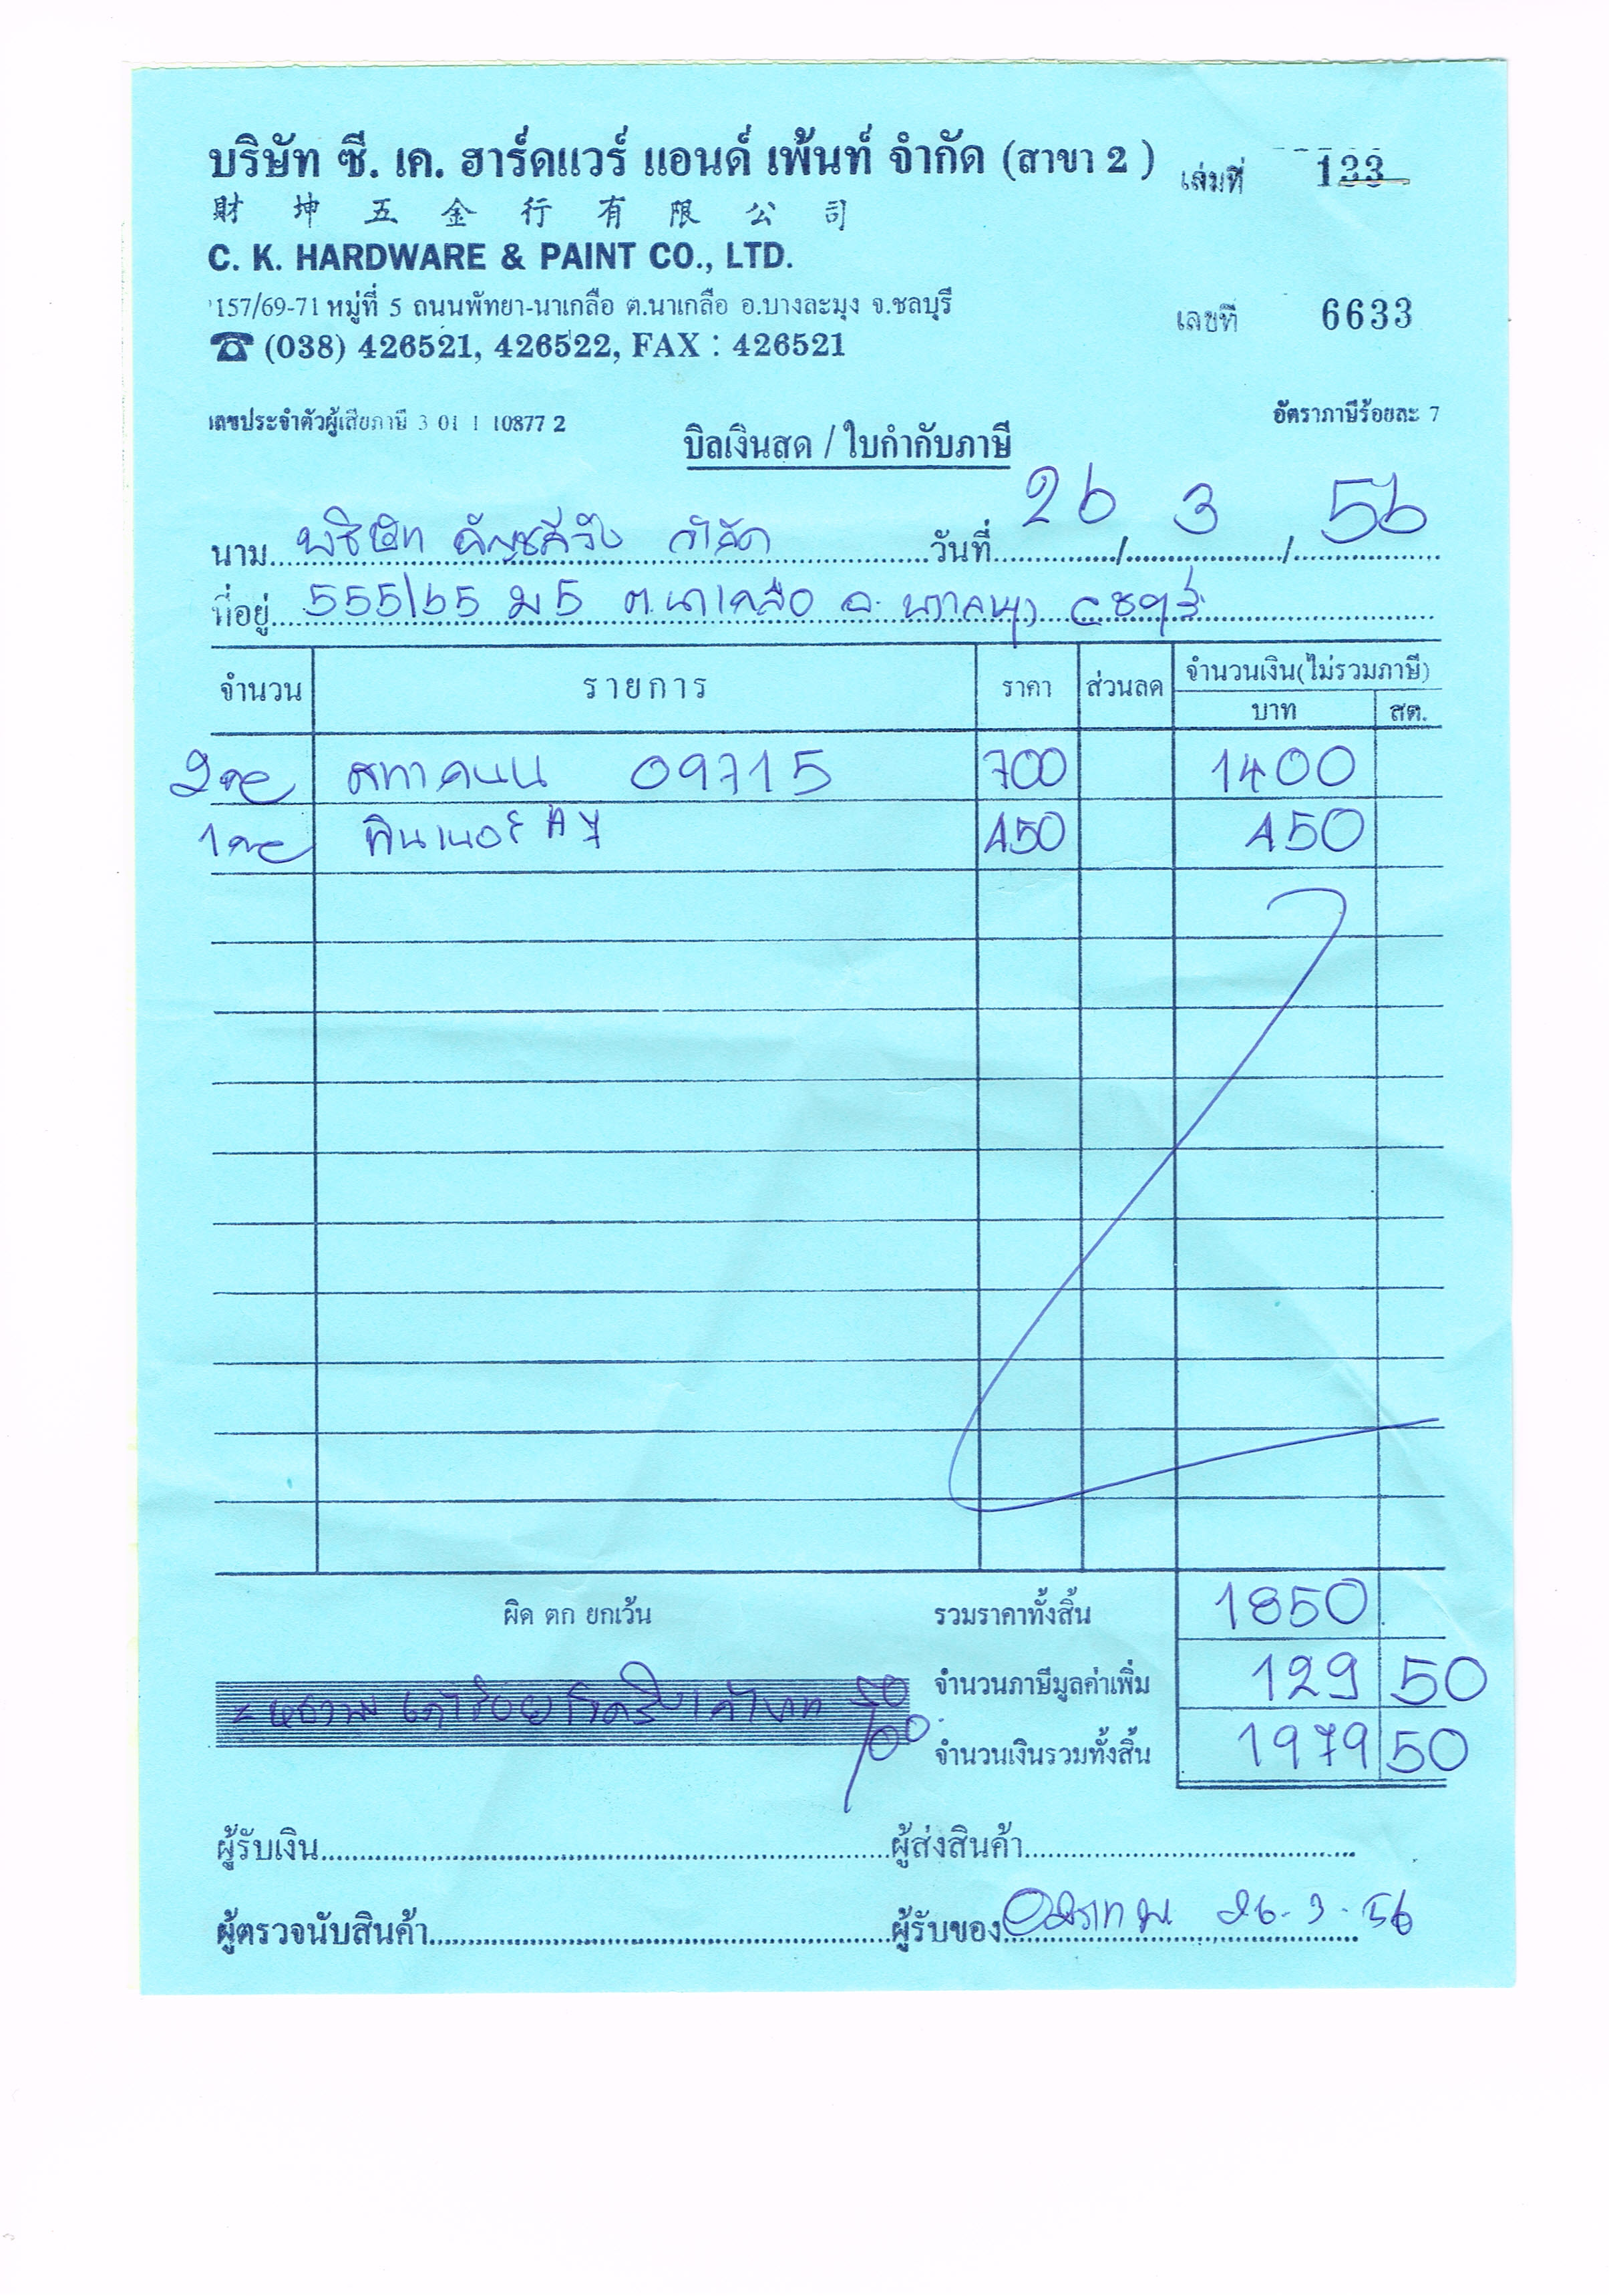 บริษัท ซี. เค. ฮาร์ดแวร์ แอนด์ เพ้นท์ จำกัด (สาขา 2 ) เล่มที่ 133
財 坤 五 金 行 有 限 公 司
C. K. HARDWARE & PAINT CO., LTD.
157/69-71 หมู่ที่ 5 ถนนพัทยา-นาเกลือ ต.นาเกลือ อ.บางละมุง จ.ชลบุรี เลขที่ 6633
☎ (038) 426521, 426522, FAX : 426521
เลขประจำตัวผู้เสียภาษี 3 01 1 10877 2 อัตราภาษีร้อยละ 7
บิลเงินสด / ใบกำกับภาษี
นาม บริษัท จำกัด วันที่ 26 / 3 / 56
ที่อยู่ 555/65 ม 5 ต.นาเกลือ อ.
จำนวน รายการ ราคา ส่วนลด จำนวนเงิน(ไม่รวมภาษี)
บาท สต.
2 09715 700 1400
1 ทินเนอร์ 450 450
ผิด ตก ยกเว้น รวมราคาทั้งสิ้น 1850
จำนวนภาษีมูลค่าเพิ่ม 129 50
50/100 จำนวนเงินรวมทั้งสิ้น 1979 50
ผู้รับเงิน ผู้ส่งสินค้า
ผู้ตรวจนับสินค้า ผู้รับของ 26-3-56